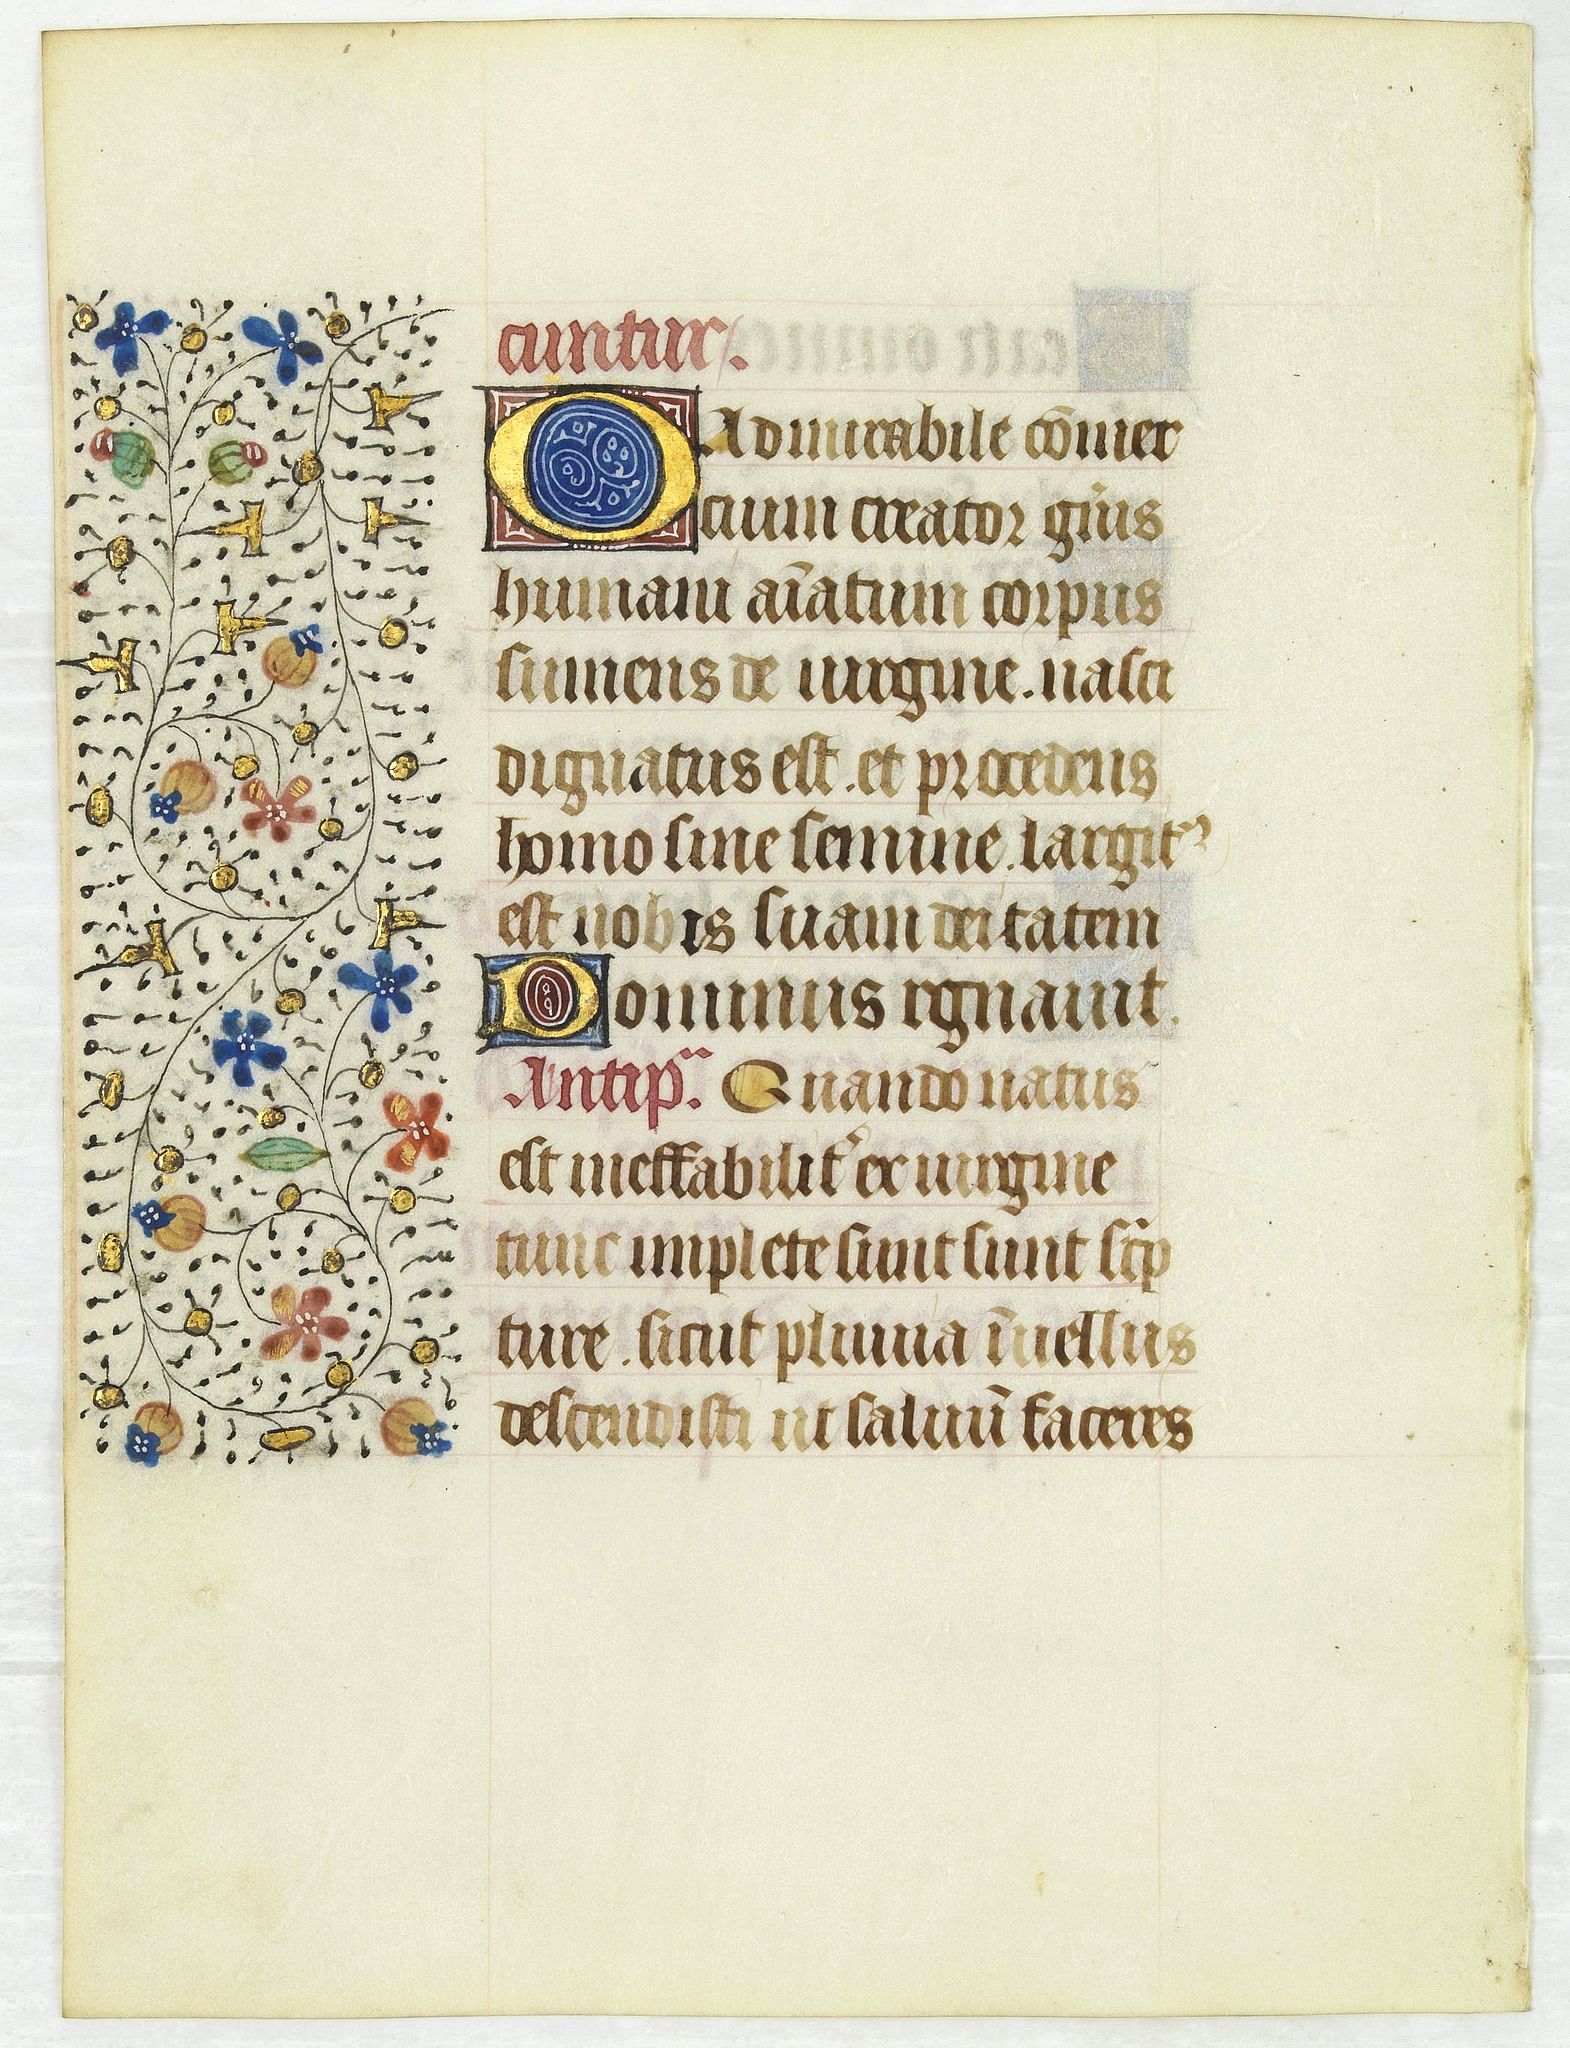 cuntur.
O Admirabile cōmer
cium creator gn̄is
humani aīatum corpus
sumens de uirgine. nasci
dignatus est. et procedens
homo sine semine. largit᷑
est nobis suam deitatem
Dominus rgnauit.
Antip̃. Quando natus
est ineffabilit᷑ ex uirgine
tunc implete sunt sunt sc̄p
ture. sicut pluuia ī uellus
descendisti ut saluū faceres